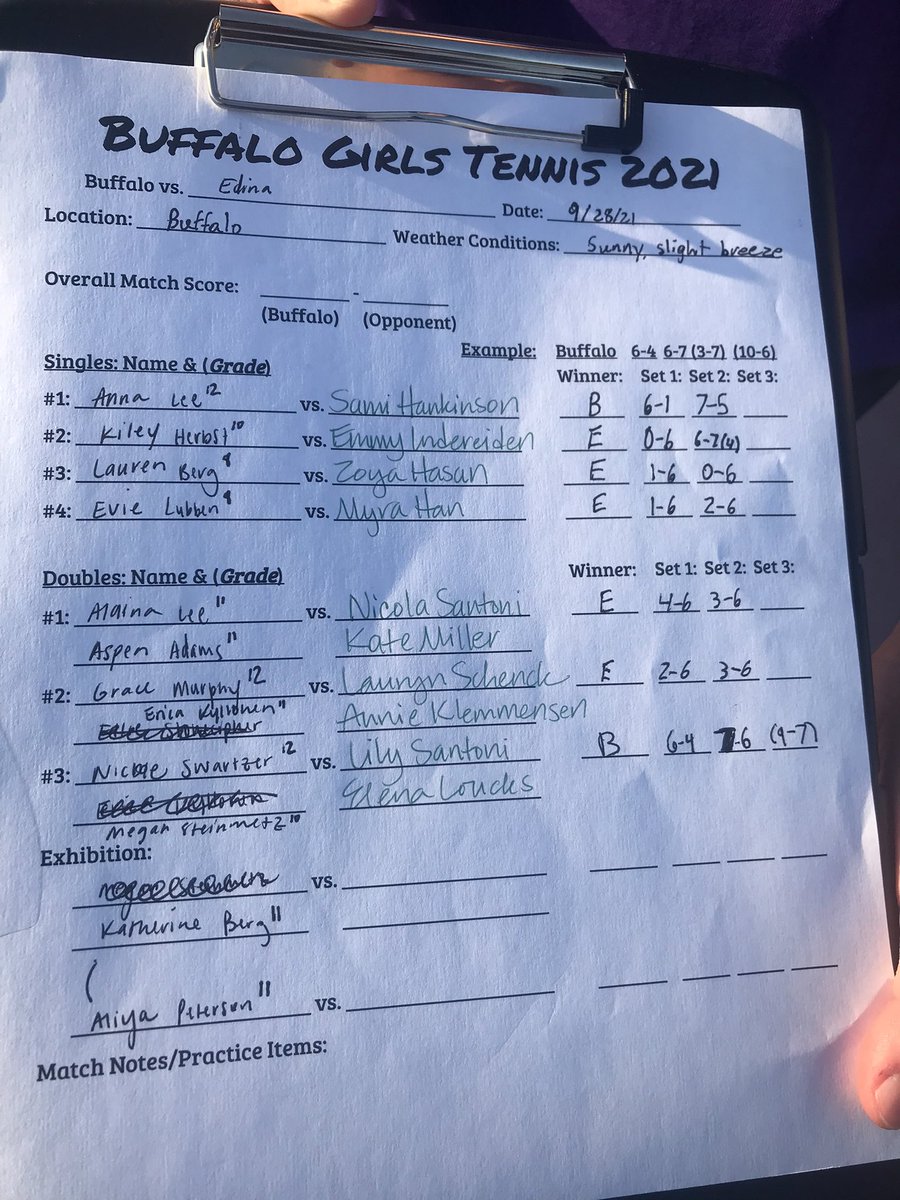 BUFFALO GIRLS TENNIS 2021
Buffalo vs. Edina Date: 9/28/21
Location: Buffalo Weather Conditions: Sunny, slight breeze
Overall Match Score: -
(Buffalo) (Opponent)
Example: Buffalo 6-4 6-7 (3-7) (10-6)
Singles: Name & (Grade) Winner: Set 1: Set 2: Set 3:
#1: Anna Lee 12 vs. Sami Hankinson B 6-1 7-5
#2: Kiley Herbst 10 vs. Emmy Indereiden E 0-6 6-7(4)
#3: Lauren Berg vs. Zoya Hasan E 1-6 0-6
#4: Evie Lubben vs. Myra Han E 1-6 2-6
Doubles: Name & (Grade) Winner: Set 1: Set 2: Set 3:
#1: Alaina Lee 11 vs. Nicola Santoni E 4-6 3-6
Aspen Adams 11 Kate Miller
#2: Grace Murphy 12 vs. Lauryn Schenck E 2-6 3-6
Erica Kyllonen 11 Annie Klemmensen
#3: Nicole Swartzer 12 vs. Lily Santoni B 6-4 7-6 (9-7)
Elena Loucks
Megan Steinmetz 10
Exhibition:
vs.
Katherine Berg 11
Aliya Peterson 11 vs.
Match Notes/Practice Items: